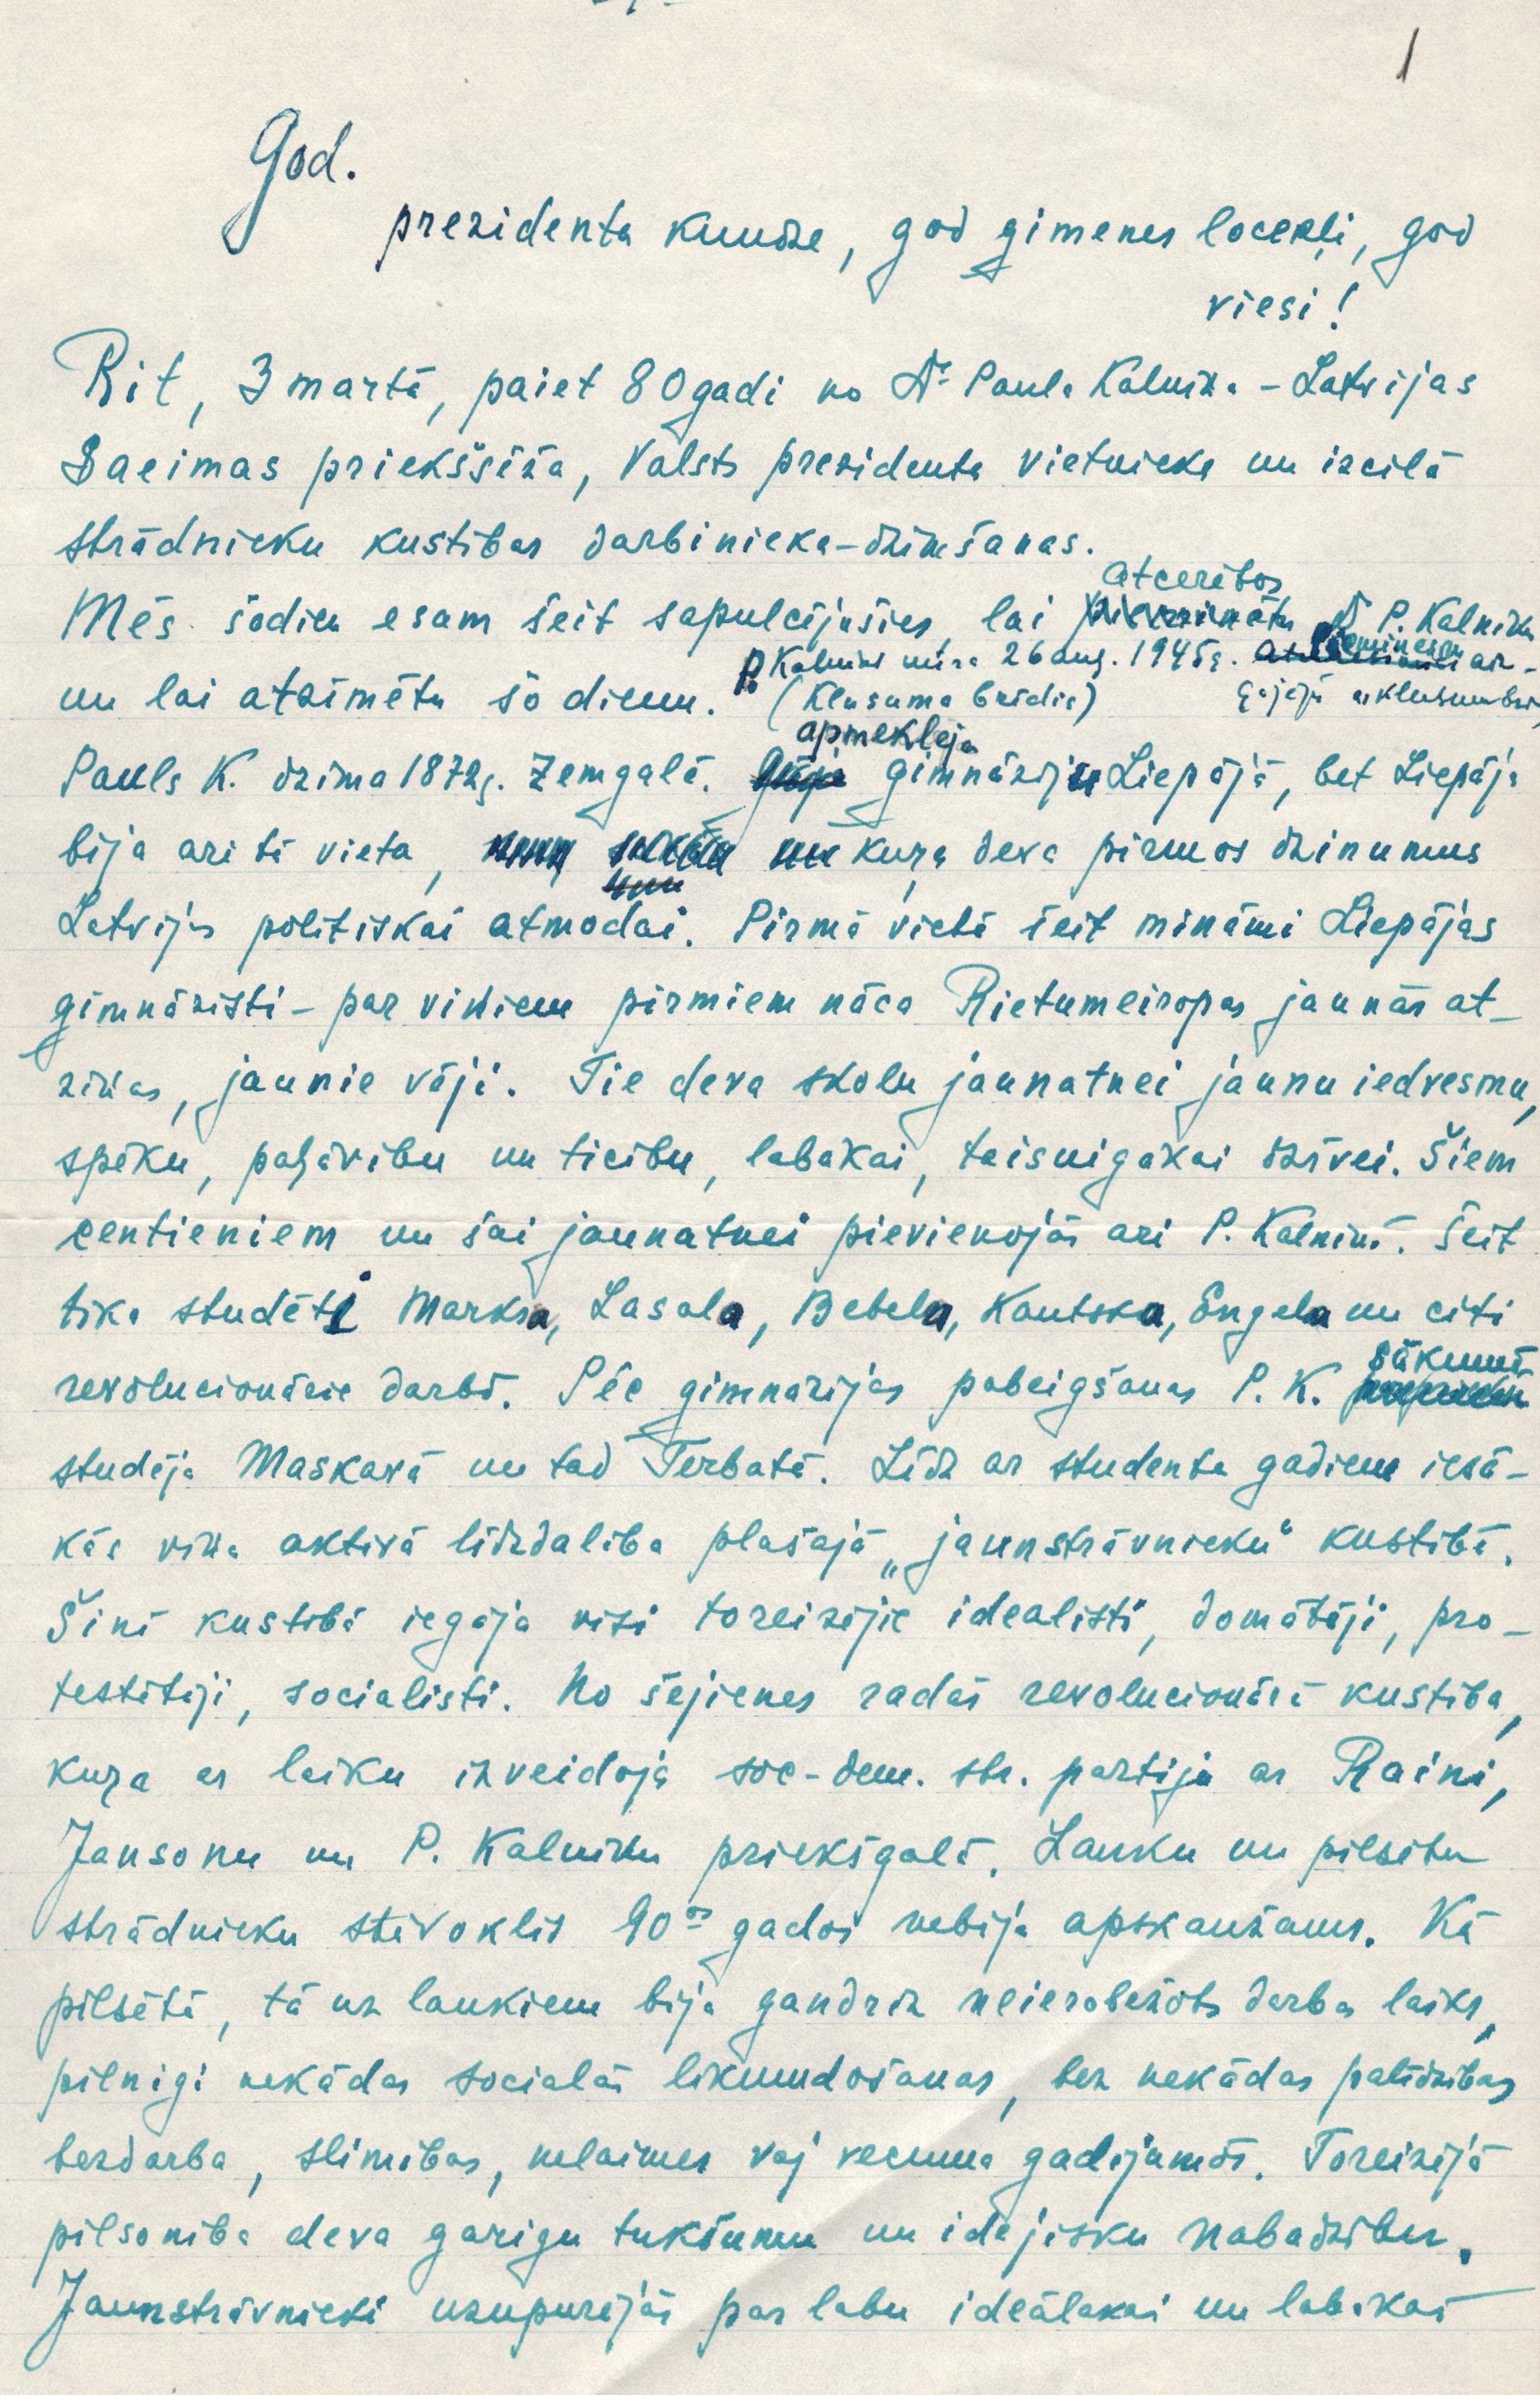 1
God.
prezidenta kundze, god ģimenes locekļi, god
viesi!
Rit, 3 martā, paiet 80 gadi no Dr Paula Kalniņa - Latvijas
Saeimas priekšsēža, Valsts prezidenta vietnieka un izcilā
strādnieku kustības darbinieka - dzimšanas.
atcerētos
Mēs šodien esam šeit sapulcējušies, lai Dr P. Kalniņu
P. Kalniņš mira 26 aug. 1945g.
un lai atzimētu šo dienu. (Klusuma bridis)
apmeklēja
Pauls K. dzima 1872g. Zemgalē. gimnāziju Liepājā, bet Liepāja
bija ari tā vieta, kuŗa deva pirmos dzinumus
Latvijas politiskai atmodai. Pirmā vietā šeit minami Liepājas
gimnāzisti - par viņiem pirmiem nāca Rietumeiropas jaunās at-
ziņas, jaunie vēji. Tie deva skolu jaunatnei jaunu iedvesmu,
spēku, paļāvibu un ticibu, labākai, taisnigākai dzīvei. Šiem
centieniem un šai jaunatnei pievienojās ari P. Kalniņš. Šeit
tika studēti Marksa, Lasala, Bebeļa, Kautska, Engeļa un citi
sākumā
revolucionārie darbi. Pēc gimnāzijas pabeigšanas P. K.
studēja Maskavā un tad Terbatā. Lidz ar studenta gadiem iesā-
kās viņa aktivā lidzdaliba plašajā „jaunstrāvnieku" kustibā.
Šinī kustibā iegāja visi toreizējie idealisti, domātāji, pro-
testētāji, socialisti. No šejienes radās revolucionārā kustiba,
kuŗa ar laiku izveidoja soc-dem. str. partiju ar Raini,
Jansonu un P. Kalniņu priekšgalā. Lauku un pilsētu
strādnieku stāvoklis 90os gados nebija apskaužams. Kā
pilsētā, tā uz laukiem bija gandriz neierobežots darba laiks,
pilnigi nekādas socialās likumdošanas, bez nekādas palidzibas
bezdarba, slimibas, nelaimes vaj vecuma gadijumos. Toreizējā
pilsoniba deva garigu tukšumu un idejisku nabadzibu.
Jaunstrāvnieki uzupurējās par labu ideālākai un labākai